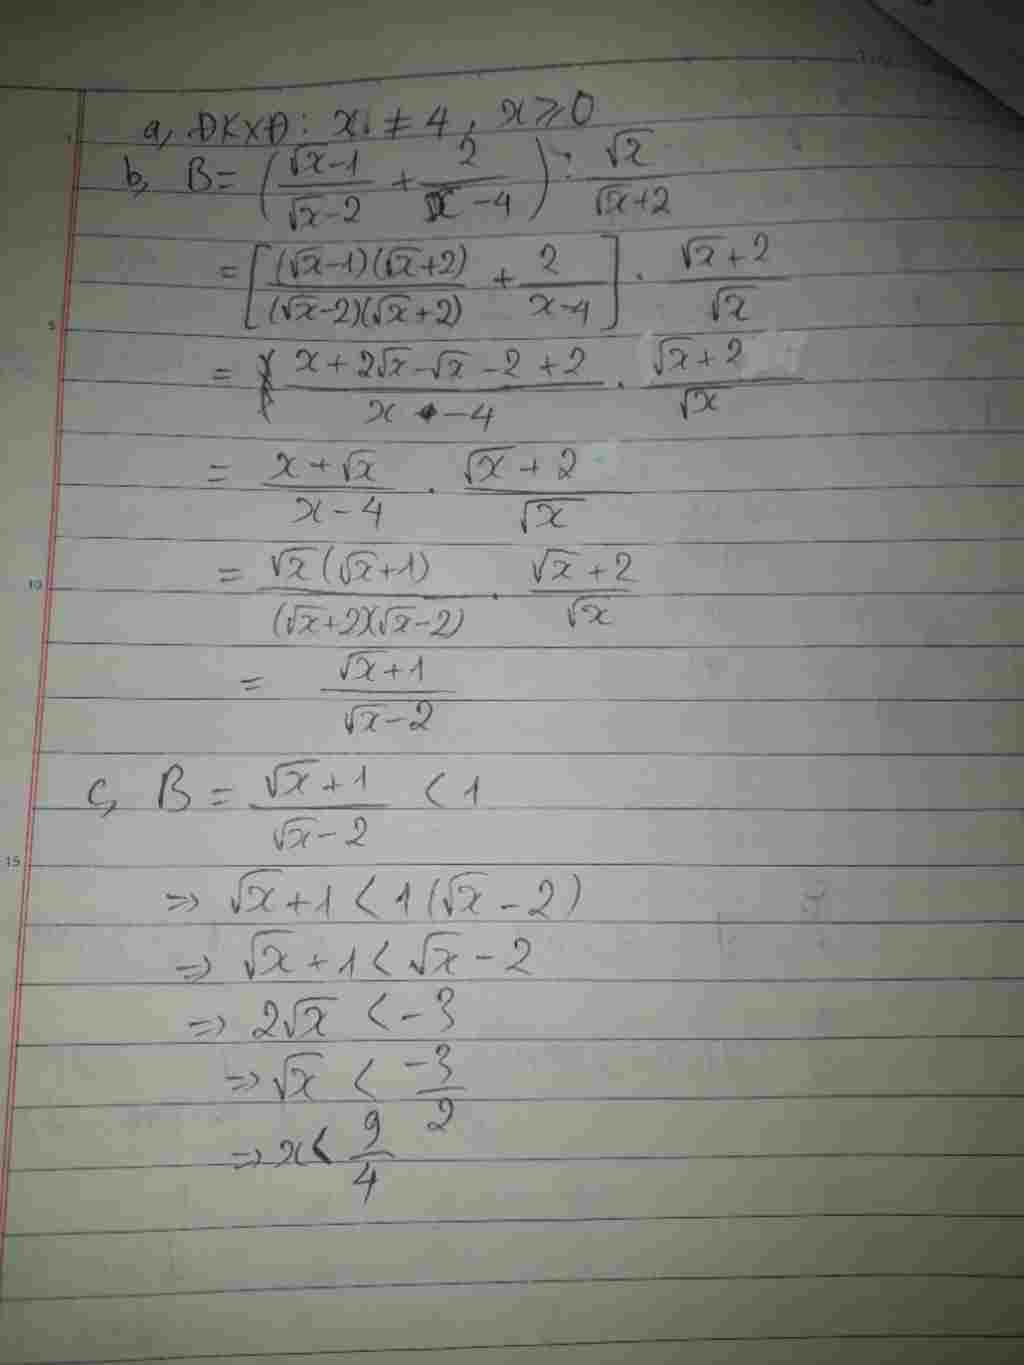 a, ĐKXĐ: x ≠ 4, x ⩾ 0
b, B = ( (√x-1)/(√x-2) + 2/(x-4) ) : √x/(√x+2)
= [ (√x-1)(√x+2)/((√x-2)(√x+2)) + 2/(x-4) ] . (√x+2)/√x
= (x+2√x-√x-2+2)/(x-4) . (√x+2)/√x
= (x+√x)/(x-4) . (√x+2)/√x
= √x(√x+1)/((√x+2)(√x-2)) . (√x+2)/√x
= (√x+1)/(√x-2)
c, B = (√x+1)/(√x-2) < 1
=> √x+1 < 1(√x-2)
=> √x+1 < √x-2
=> 2√x < -3
=> √x < -3/2
=> x < 9/4
5
10
15